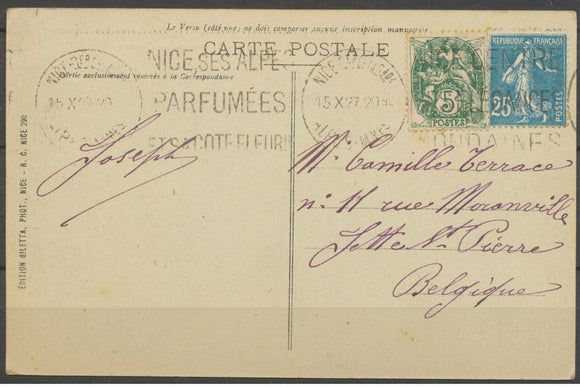 Le Verso (côté vue) ne doit comporter aucune inscription manuscrite
CARTE POSTALE
Partie exclusivement réservée à la Correspondance
NICE SES ALPES
PARFUMÉES
ET SA COTE FLEURIE
15 X 27 20
ALPES MMES
15 X 27 20
ALPES MMES
5c
POSTES
RÉPUBLIQUE FRANÇAISE
25c
POSTES
Joseph
Mr Camille Terrace
no 11 rue Moranville
Jette St Pierre
Belgique
ÉDITION GILETTA, PHOT., NICE - R. C. NICE 290